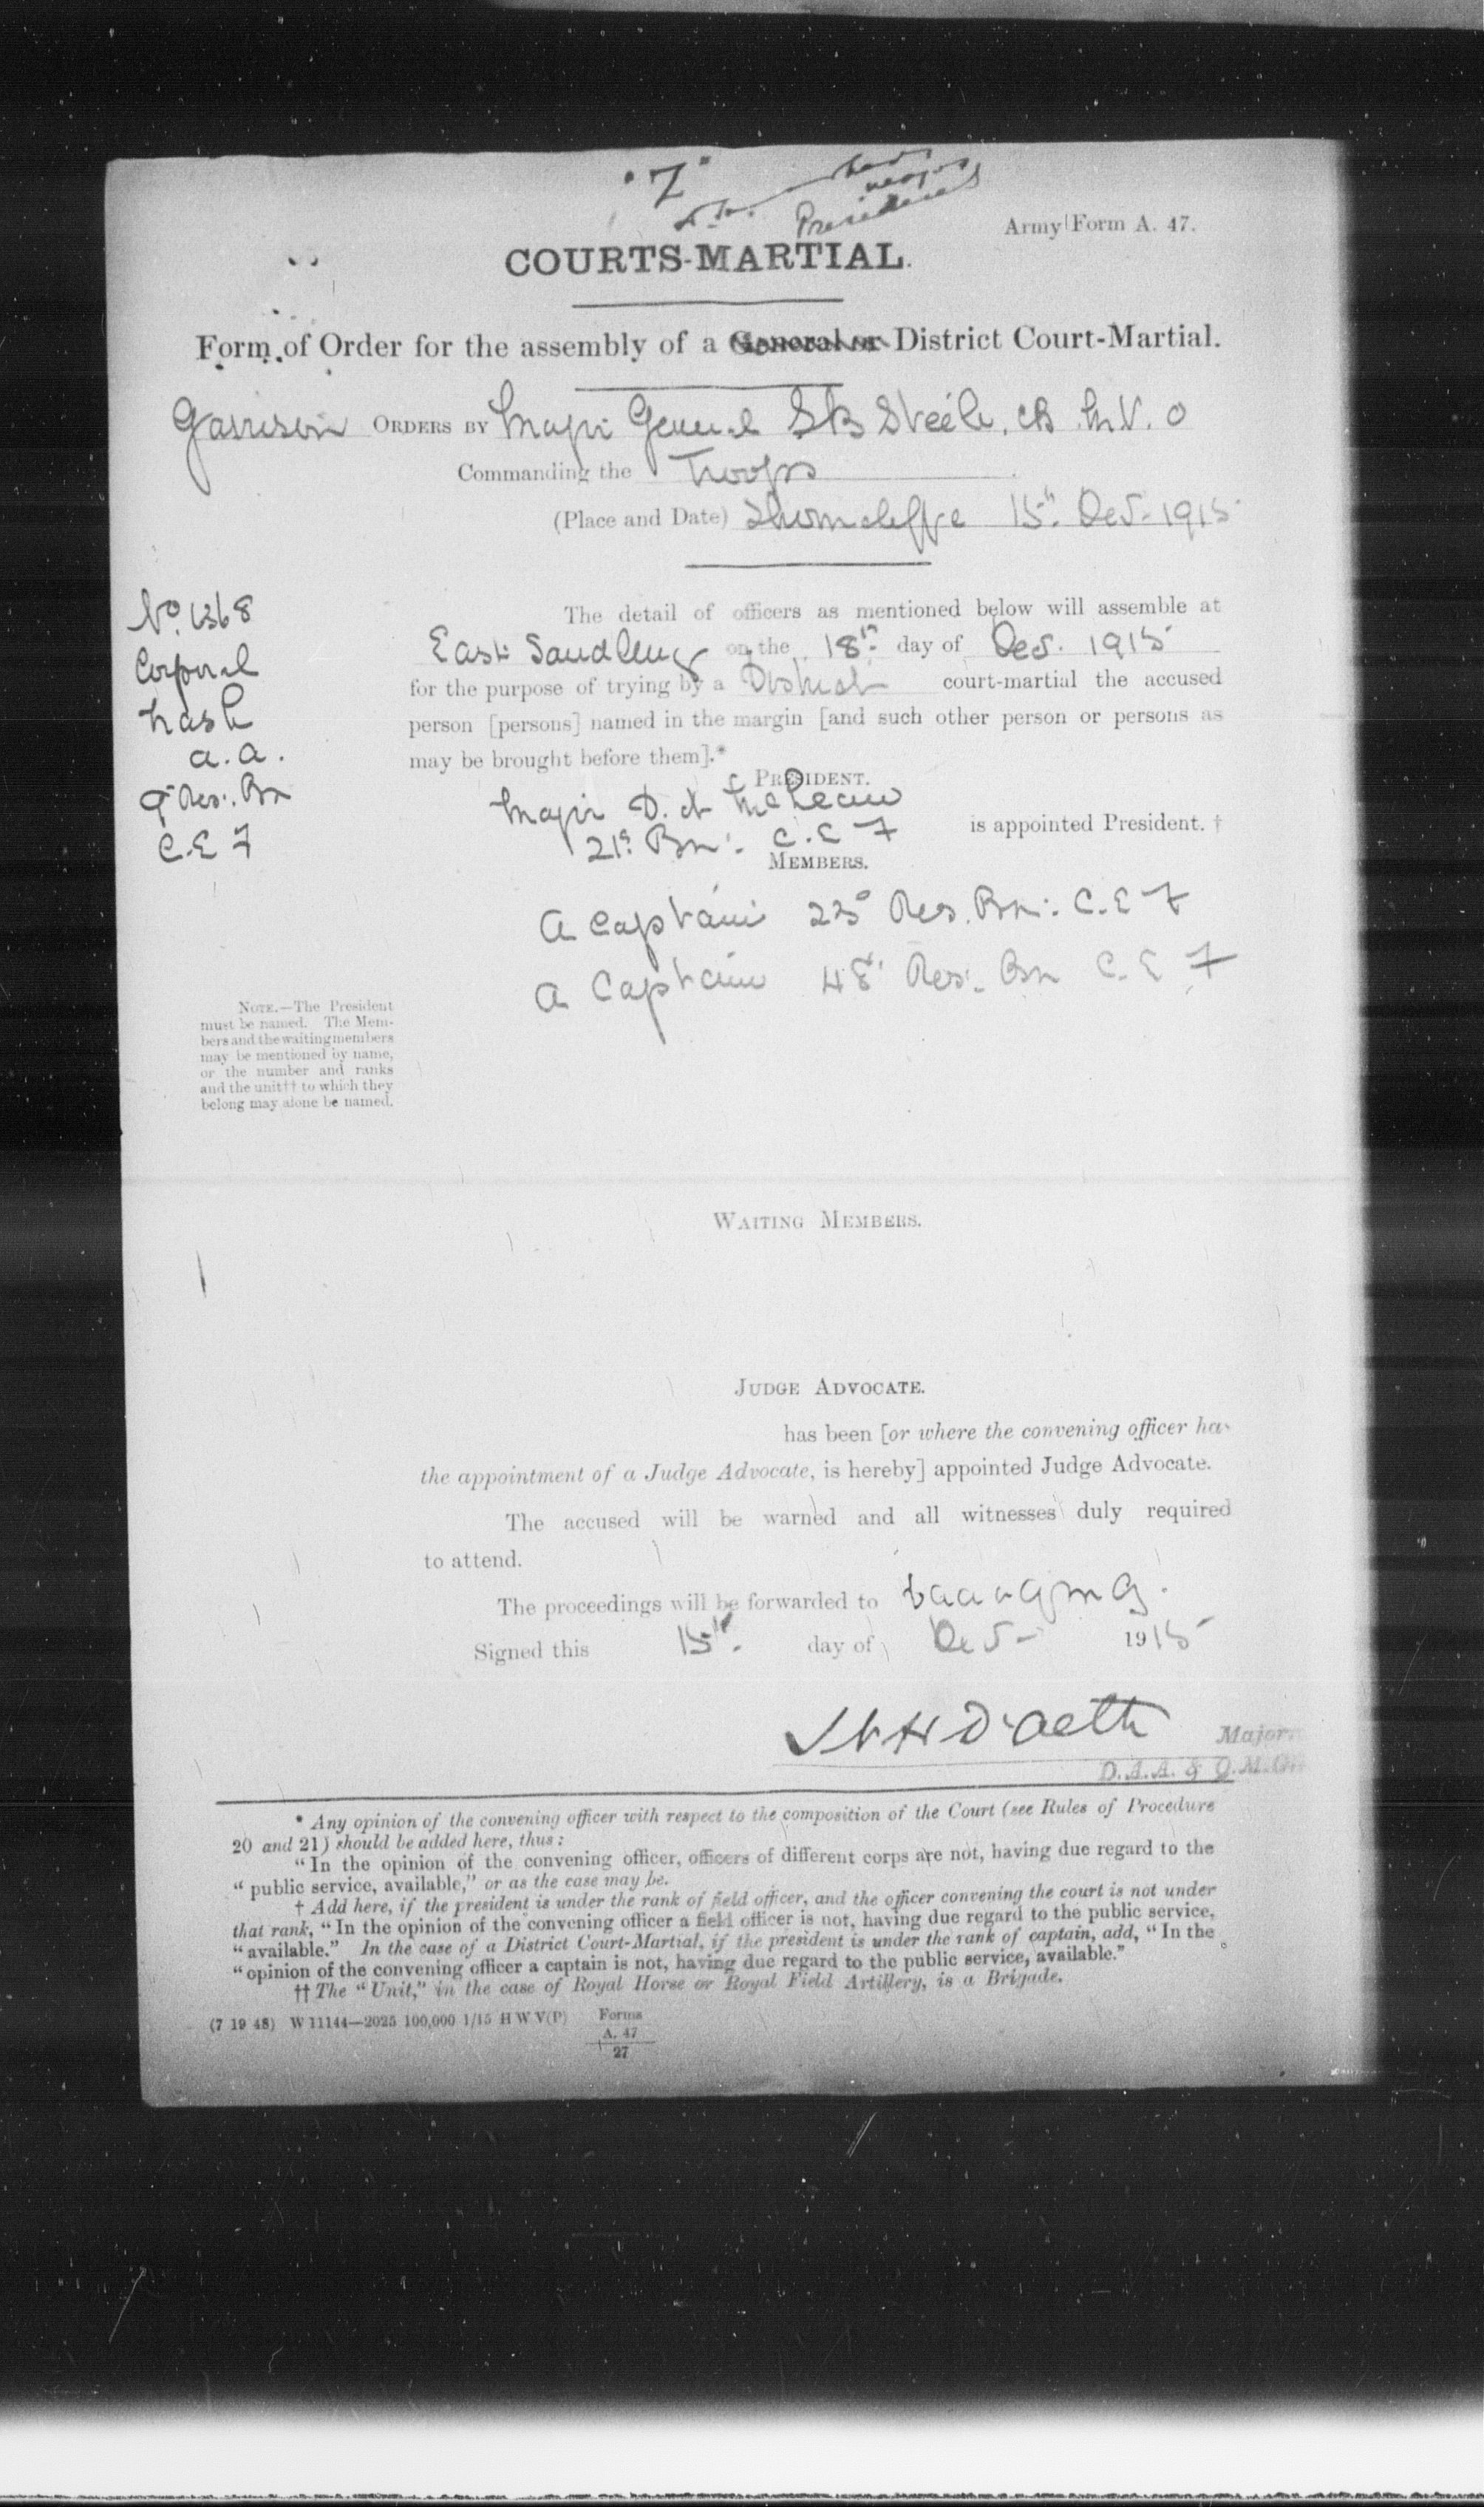 "Z"
Presidents
Army Form A. 47.
COURTS-MARTIAL.
Form of Order for the assembly of a General or District Court-Martial.
Garrison ORDERS BY Major General S B Steele, CB. M.V.O
Commanding the Troops
(Place and Date) Shorncliffe 15th Dec. 1915
No. 1368
Corporal
Nash
A.A.
9th Res. Bn
C.E F
The detail of officers as mentioned below will assemble at
East Sandling on the 18th day of Dec. 1915
for the purpose of trying by a District court-martial the accused
person [persons] named in the margin [and such other person or persons as
may be brought before them].*
PRESIDENT.
Major D. McLean
21st Bn: C.E F is appointed President. †
MEMBERS.
A Captain 23d Res. Bn: C.E F
A Captain 48th Res. Bn C.E F
NOTE.—The President
must be named. The Mem-
bers and the waiting members
may be mentioned by name,
or the number and ranks
and the unit†† to which they
belong may alone be named.
WAITING MEMBERS.
JUDGE ADVOCATE.
has been [or where the convening officer has
the appointment of a Judge Advocate, is hereby] appointed Judge Advocate.
The accused will be warned and all witnesses duly required
to attend.
The proceedings will be forwarded to DAA & QMG.
Signed this 15th day of Dec 1915
D'Aeth Major
D.A.A. & Q.M.G.
* Any opinion of the convening officer with respect to the composition of the Court (see Rules of Procedure
20 and 21) should be added here, thus:
"In the opinion of the convening officer, officers of different corps are not, having due regard to the
" public service, available," or as the case may be.
† Add here, if the president is under the rank of field officer, and the officer convening the court is not under
that rank, "In the opinion of the convening officer a field officer is not, having due regard to the public service,
"available." In the case of a District Court-Martial, if the president is under the rank of captain, add, "In the
"opinion of the convening officer a captain is not, having due regard to the public service, available."
†† The "Unit," in the case of Royal Horse or Royal Field Artillery, is a Brigade.
(7 19 48) W 11144—2025 100,000 1/15 H W V(P) Forms
A. 47
27